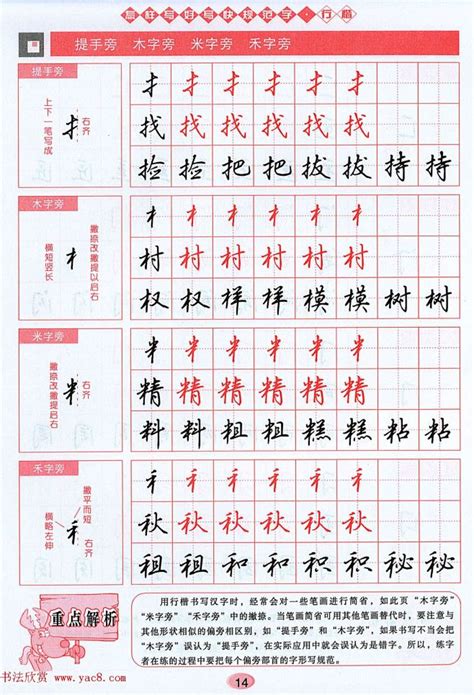 怎样写好写快规范字·行楷
提手旁 木字旁 米字旁 禾字旁
提手旁
上下一笔写成
扌
右齐
扌 扌 扌 扌 扌 扌
找 找 找 找 找 找
捡 捡 把 把 拔 拔 持 持
木字旁
横短竖长
木
撇捺改撇提以启右
木 木 木 木 木 木
村 村 村 村 村 村
权 权 样 样 模 模 树 树
米字旁
撇捺改撇提启右
米
右齐
米 米 米 米 米 米
精 精 精 精 精 精
料 料 粗 粗 糕 糕 粘 粘
禾字旁
横略左伸
撇平而短
禾
右齐
禾 禾 禾 禾 禾 禾
秋 秋 秋 秋 秋 秋
租 租 和 和 积 积 秘 秘
重点解析
用行楷书写汉字时，经常会对一些笔画进行简省，如此页“木字旁”
“米字旁”“禾字旁”中的撇捺。当笔画简省可用其他笔画替代时，要注意与
其他形状相似的偏旁相区别，如“提手旁”和“木字旁”，如果书写不当会把
“木字旁”误认为“提手旁”，在实际应用中就会误认为是错字。所以，练字
者在练的过程中要把每个偏旁部首的字形写规范。
14
书法欣赏 www.yac8.com